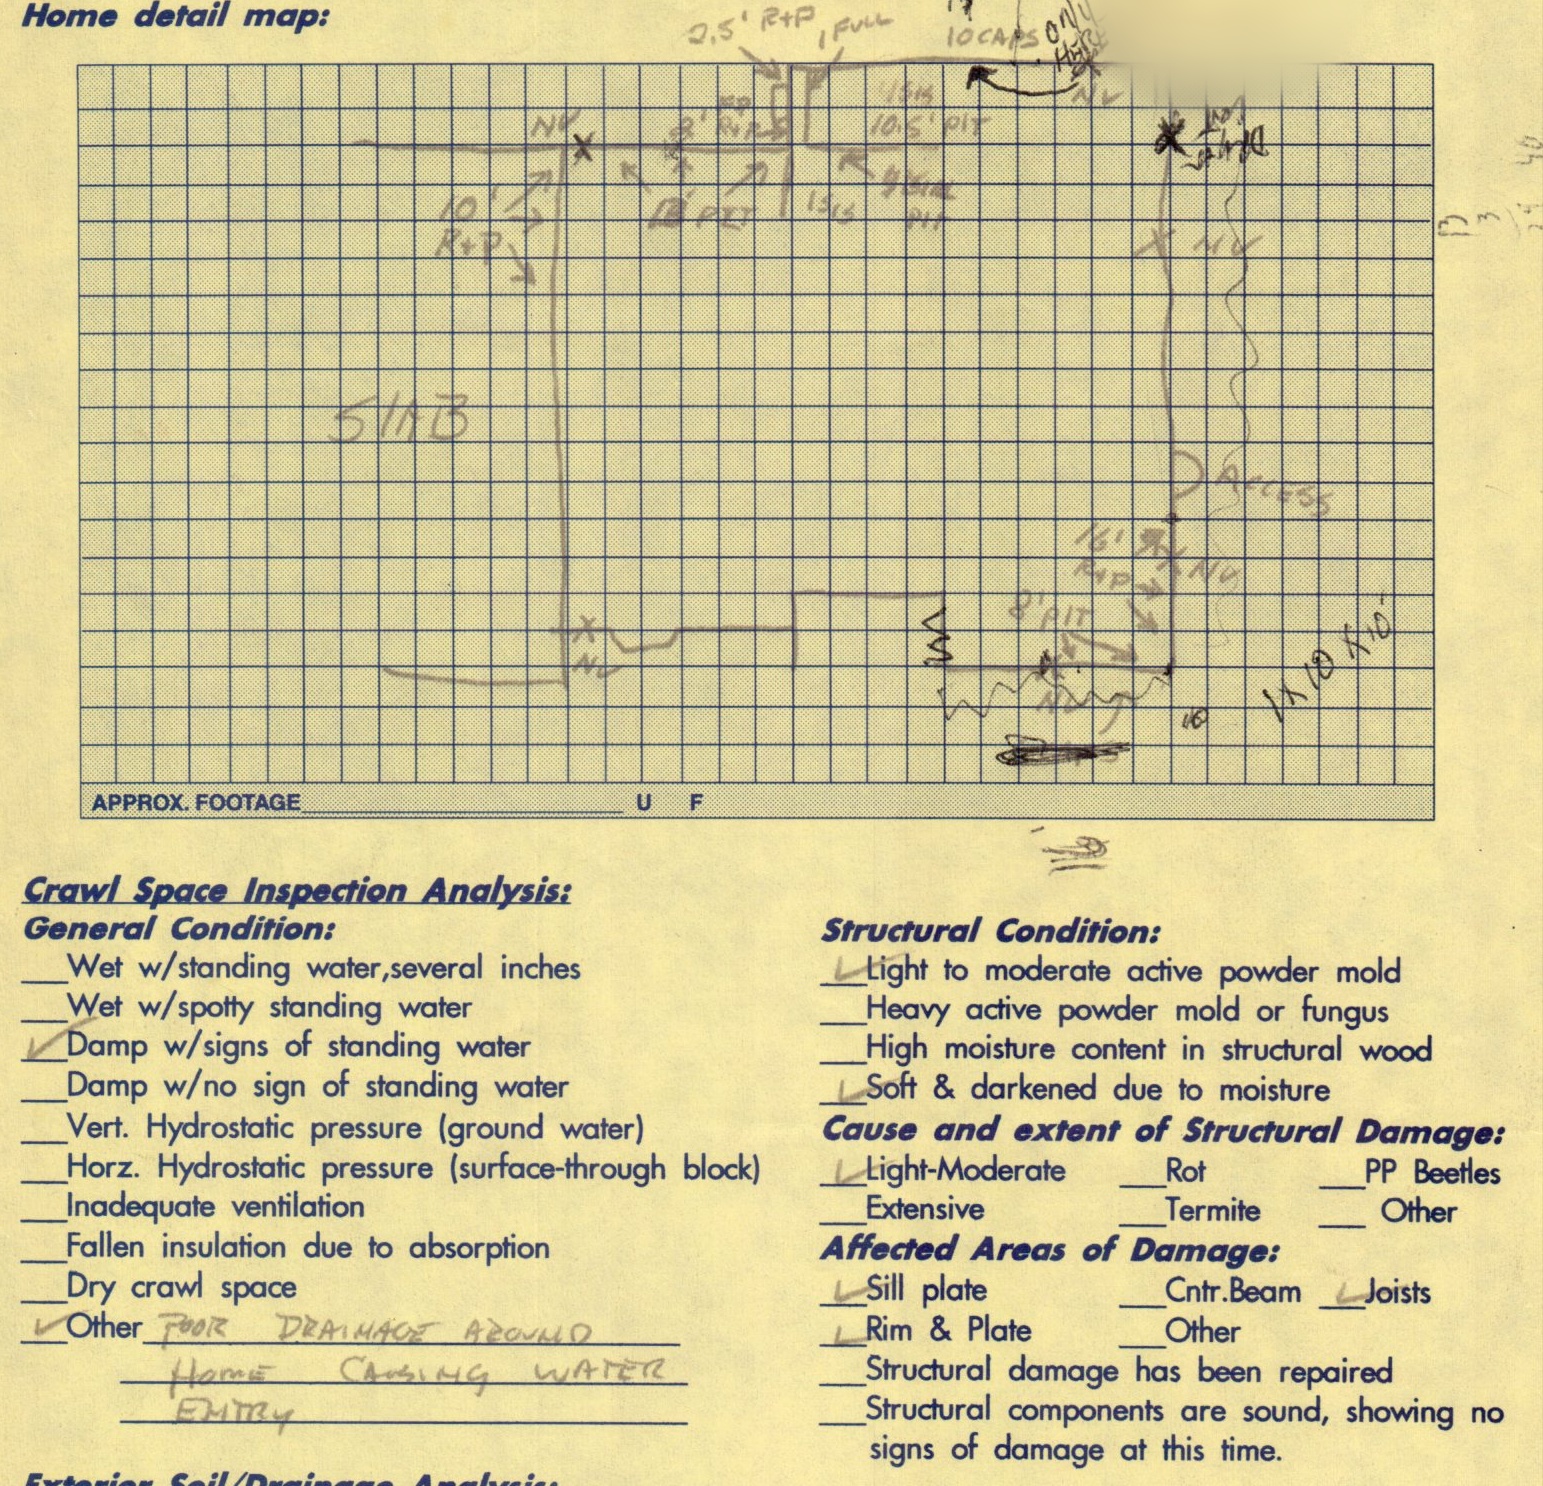 Home detail map:
2.5' R+P 1 FULL 10 CAPS ONLY
NV 8' R+P 10.5' PIT NV
10' R+P PIT 1SIS PIT
NV
SLAB
ACCESS
16' R+P NV
8' PIT
NV NV
1 X 10 X 10'
APPROX. FOOTAGE U F
Crawl Space Inspection Analysis:
General Condition:
Wet w/standing water,several inches
Wet w/spotty standing water
Damp w/signs of standing water
Damp w/no sign of standing water
Vert. Hydrostatic pressure (ground water)
Horz. Hydrostatic pressure (surface-through block)
Inadequate ventilation
Fallen insulation due to absorption
Dry crawl space
Other POOR DRAINAGE AROUND
HOME CAUSING WATER
ENTRY
Structural Condition:
Light to moderate active powder mold
Heavy active powder mold or fungus
High moisture content in structural wood
Soft & darkened due to moisture
Cause and extent of Structural Damage:
Light-Moderate Rot PP Beetles
Extensive Termite Other
Affected Areas of Damage:
Sill plate Cntr.Beam Joists
Rim & Plate Other
Structural damage has been repaired
Structural components are sound, showing no
signs of damage at this time.
Exterior Soil/Drainage Analysis: